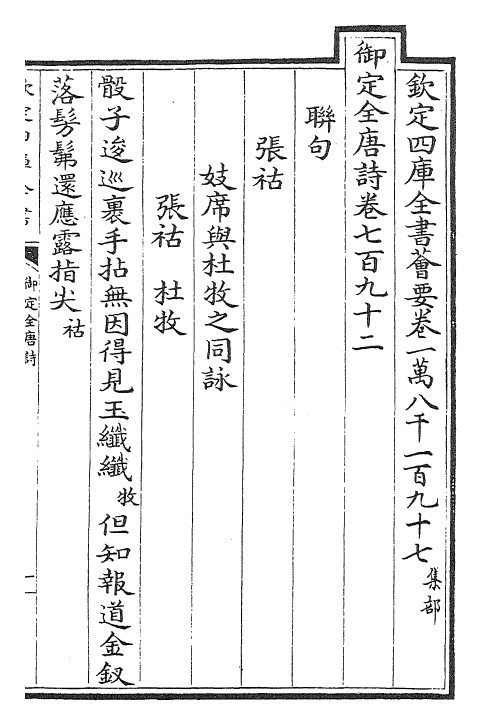 欽定四庫全書薈要卷一萬八千一百九十七 集部
御定全唐詩卷七百九十二
聯句
張祜
妓席與杜牧之同詠
張祜 杜牧
骰子逡巡裹手拈無因得見玉纖纖 牧 但知報道金釵
落髣髴還應露指尖 祜
御定全唐詩